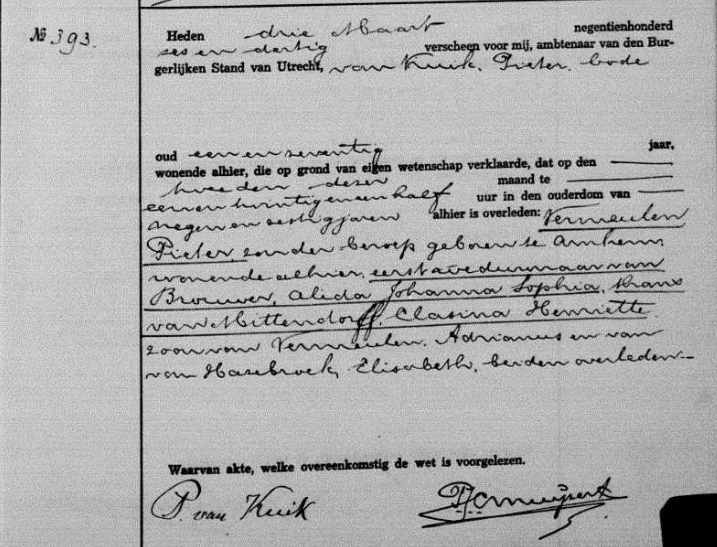 № 393.
Heden drie Maart negentienhonderd
zes en dertig verscheen voor mij, ambtenaar van den Bur-
gerlijken Stand van Utrecht, van Kuik, Pieter, bode
oud een en zeventig jaar,
wonende alhier, die op grond van eigen wetenschap verklaarde, dat op den
tweeden dezer maand te
een en twintig en een half uur in den ouderdom van
negen en zestig jaren alhier is overleden: Vermeulen
Pieter zonder beroep geboren te Arnhem,
wonende alhier, eerst weduwnaar van
Brouwer, Alida Johanna Sophia, thans
van Mittendorff, Clasina Henriette,
zoon van Vermeulen, Adrianus en van
van Hasebroek, Elisabeth, beiden overleden.—
Waarvan akte, welke overeenkomstig de wet is voorgelezen.
P. van Kuik